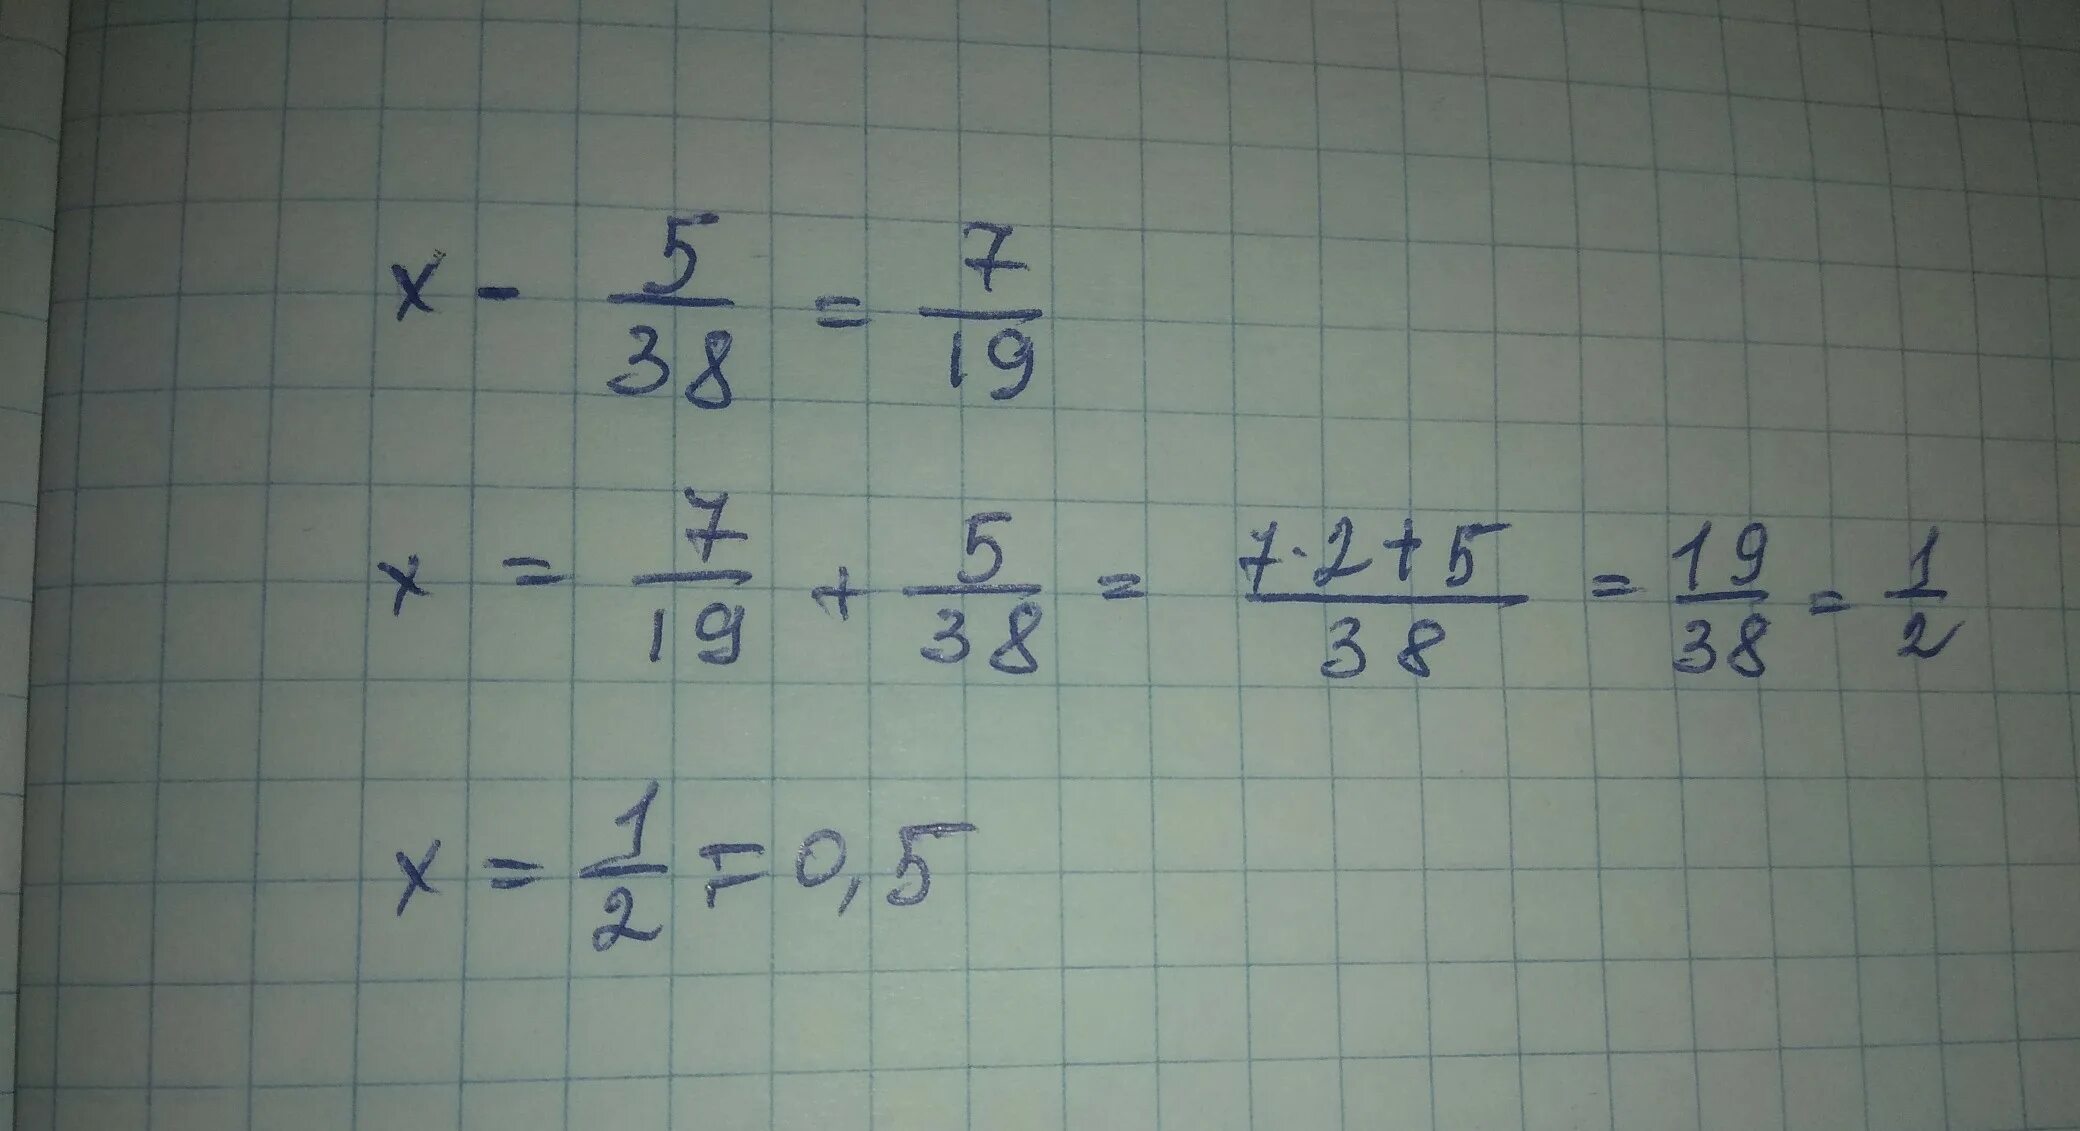 x - 5/38 = 7/19
x = 7/19 + 5/38 = 7·2+5/38 = 19/38 = 1/2
x = 1/2 = 0,5